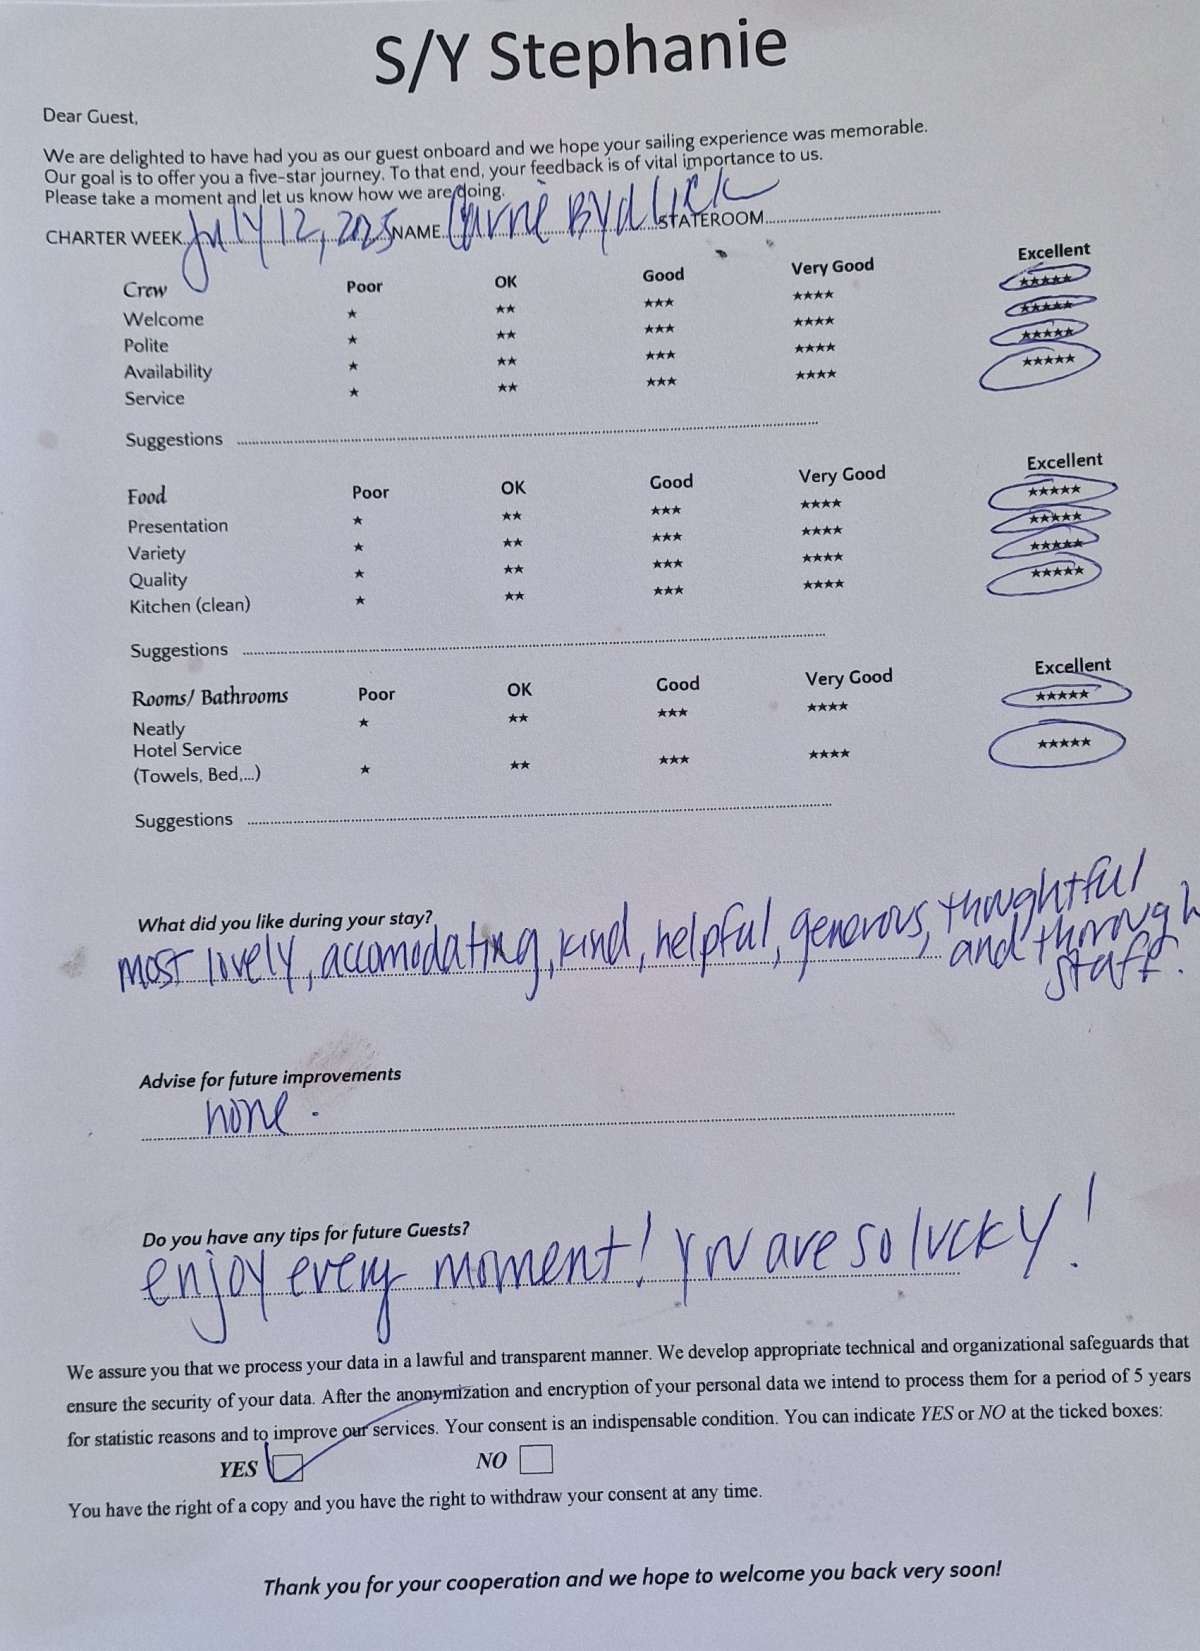 S/Y Stephanie
Dear Guest,
We are delighted to have had you as our guest onboard and we hope your sailing experience was memorable.
Our goal is to offer you a five-star journey. To that end, your feedback is of vital importance to us.
Please take a moment and let us know how we are doing.
CHARTER WEEK July 12, 2025 NAME STATEROOM
Crew Poor OK Good Very Good Excellent
Welcome ★ ★★ ★★★ ★★★★ ★★★★★
Polite ★ ★★ ★★★ ★★★★ ★★★★★
Availability ★ ★★ ★★★ ★★★★ ★★★★★
Service ★ ★★ ★★★ ★★★★ ★★★★★
Suggestions
Food Poor OK Good Very Good Excellent
Presentation ★ ★★ ★★★ ★★★★ ★★★★★
Variety ★ ★★ ★★★ ★★★★ ★★★★★
Quality ★ ★★ ★★★ ★★★★ ★★★★★
Kitchen (clean) ★ ★★ ★★★ ★★★★ ★★★★★
Suggestions
Rooms/ Bathrooms Poor OK Good Very Good Excellent
Neatly ★ ★★ ★★★ ★★★★ ★★★★★
Hotel Service
(Towels, Bed,...) ★ ★★ ★★★ ★★★★ ★★★★★
Suggestions
What did you like during your stay?
most lovely, accomodating, kind, helpful, generous, thoughtful
and thorough
staff.
Advise for future improvements
none.
Do you have any tips for future Guests?
enjoy every moment! you are so lucky!
We assure you that we process your data in a lawful and transparent manner. We develop appropriate technical and organizational safeguards that
ensure the security of your data. After the anonymization and encryption of your personal data we intend to process them for a period of 5 years
for statistic reasons and to improve our services. Your consent is an indispensable condition. You can indicate YES or NO at the ticked boxes:
YES NO
You have the right of a copy and you have the right to withdraw your consent at any time.
Thank you for your cooperation and we hope to welcome you back very soon!